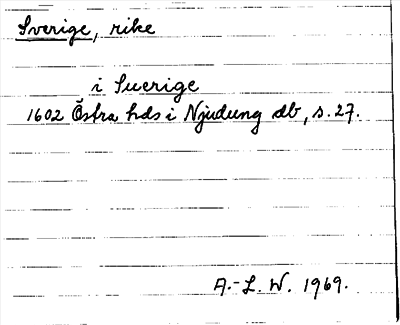 Sverige, rike
i Suerige
1602 Östra hds i Njudung db, s. 27.
A.-L. W. 1969.